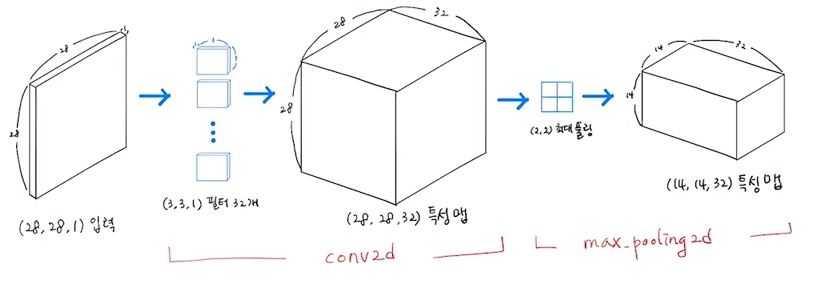 28
1
28
(28, 28, 1) 입력
1
(3, 3, 1) 필터 32개
28
32
28
(28, 28, 32) 특성 맵
(2, 2) 최대 풀링
14
32
14
(14, 14, 32) 특성 맵
conv2d
max_pooling2d